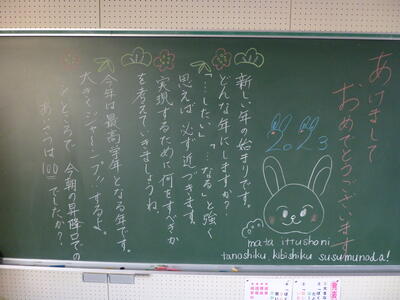 あけまして
おめでとうございます
2023
新しい年の始まりです。
どんな年にしますか?
「…したい」「…なる」と強く
思えば必ず近づきます。
実現するために何をすべきか
を考えていきましょうね。
今年は最高学年となる年です。
大きくジャ〜ンプ!!するよ。
ところで今朝の昇降口での
あいさつは100でしたか?
mata ittushoni
tanoshiku kibishiku susumunoda!